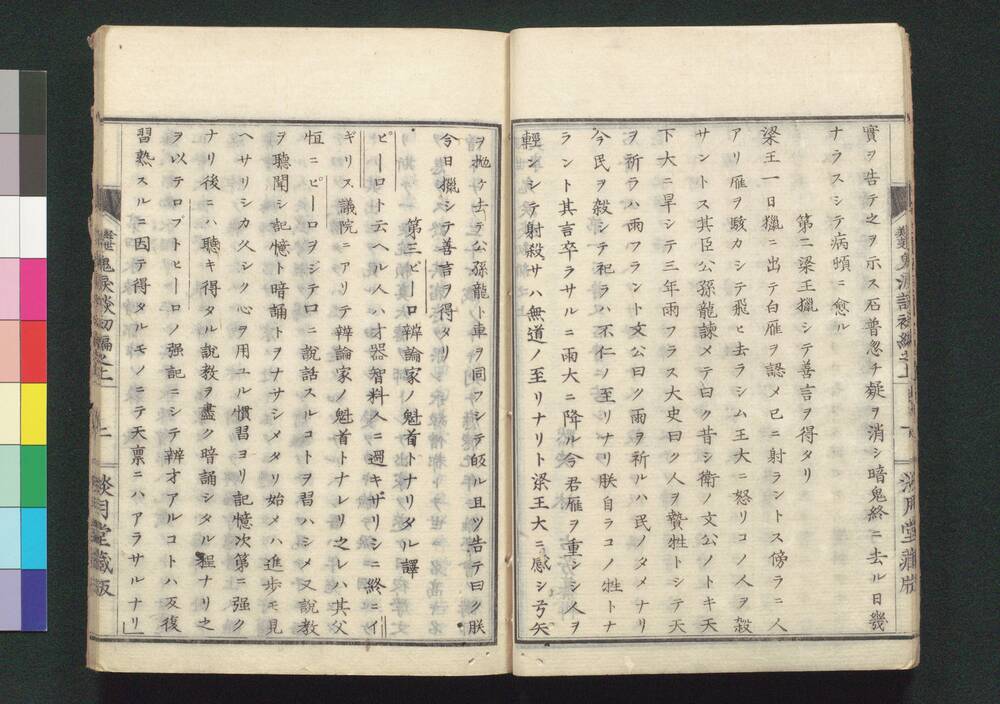 實ヲ告テ之ヲ示ス石普忽チ疑ヲ消シ暗鬼終ニ去ル日幾
ナラスシテ病頓ニ愈ル
第二梁王獵シテ善言ヲ得タリ
梁王一日獵ニ出テ白雁ヲ認メ已ニ射ラントス傍ラニ人
アリ雁ヲ駭カシテ飛ヒ去ラシム王大ニ怒リコノ人ヲ殺
サントス其臣公孫龍諫メテ曰ク昔シ衛ノ文公ノトキ天
下大ニ旱シテ三年雨フラス大史曰ク人ヲ贄牲トシテ天
ヲ祈ラハ雨フラント文公曰ク雨ヲ祈ルハ民ノタメナリ
今民ヲ殺シテ祀ラハ不仁ノ至リナリ朕自ラコノ牲トナ
ラント其言卒ラサルニ雨大ニ降ル今君雁ヲ重ンシ人ヲ
輕ンシテ射殺サハ無道ノ至リナリト梁王大ニ感シ弓矢
ヲ抛ケ去テ公孫龍ト車ヲ同フシテ皈ル且ツ告テ曰ク朕
今日獵シテ善言ヲ得タリ
第三ピーロ辨論家ノ魁首トナリタル譯
ピーロト云ヘル人ハ才器智料人ニ過キザリシニ終ニイ
ギリス議院ニアリテ辨論家ノ魁首トナレリ之レハ其父
恒ニピーロヲシテ口ニ說話スルコトヲ習ハシメ又說教
ヲ聽聞シ記憶ト暗誦トヲナサシメタリ始メハ進歩モ見
ヘサリシカ久シク心ヲ用ユル慣習ヨリ記憶次第ニ强ク
ナリ後ニハ聽キ得タル說教ヲ盡ク暗誦シタル程ナリ之
ヲ以テロブトピーロノ强記ニシテ辨才アルコトハ反復
習熟スルニ因テ得タルモノニテ天禀ニハアラサルナリ
鬼淚談初編之上
二
談月堂藏版